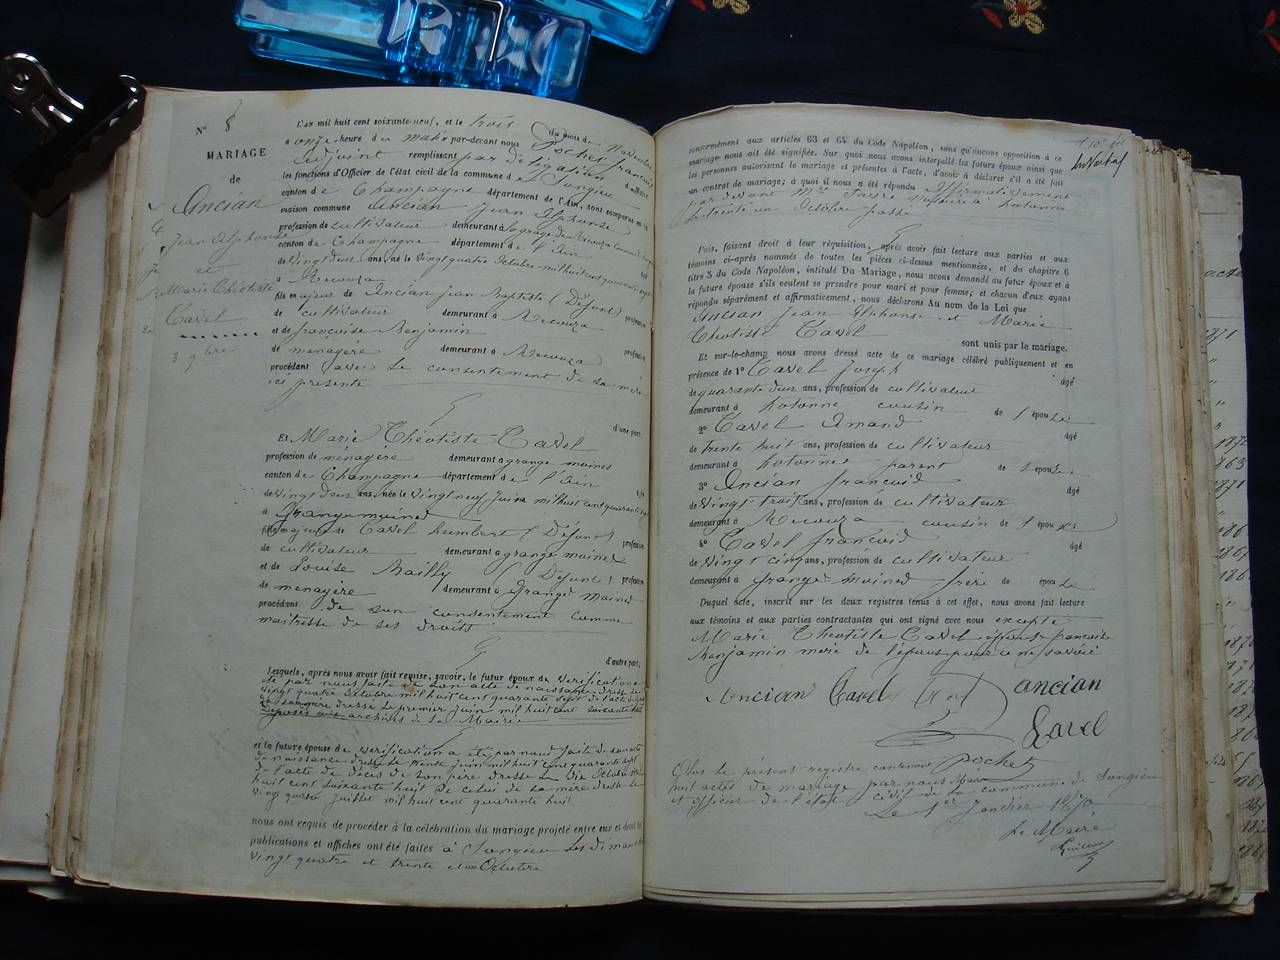 N° 8
MARIAGE
de
Ancian
Jean Alphonse
et
Marie Théotiste
Cavel
3 9bre
L'an mil huit cent soixante-neuf, et le trois du mois de Novembre
à onze heure du matin par-devant nous Pochet François
adjoint remplissant par délégation
les fonctions d'Officier de l'état civil de la commune de Songieu
canton de Champagne département de l'Ain, sont comparus en la
maison commune Ancian Jean Alphonse
profession de cultivateur demeurant à
canton de Champagne département de l'Ain
de vingt deux ans, né le vingt quatre Octobre mil huit cent quarante sept
à Recouza
fils majeur de Ancian Jean Baptiste (Défunt) profession
de cultivateur demeurant à Recouza
et de françoise Benjamin
de ménagère demeurant à Recouza profession
procédant avec le consentement de sa mère
ici présente
d'une part,
Et Marie Théotiste Cavel
profession de ménagère demeurant à grange moines
canton de Champagne département de l'Ain
de vingt deux ans, née le vingt neuf Juin mil huit cent quarante sept
à Grange moines
fille majeure de Cavel humbert (Défunt) profession
de cultivateur demeurant à grange moines
et de Louise Bailly (Défunte) profession
de menagère demeurant à Grange moines
procédant de son consentement comme
maitresse de ses droits
d'autre part;
Lesquels, après nous avoir fait remise, savoir, le futur époux de vérification
été par nous faite de son acte de naissance dressé le
vingt quatre Octobre mil huit cent quarante sept de l'acte de
dressé le premier Juin mil huit cent soixante
déposés aux archives de la Mairie
et la future épouse de vérification a été par nous faite de son acte
de naissance dressé le trente Juin mil huit cent quarante sept
de l'acte de décès de son père dressé le dix Octobre mil
huit cent soixante huit de celui de sa mère dressé le
vingt quatre Juillet mil huit cent quarante huit
nous ont requis de procéder à la célébration du mariage projeté entre eux et dont les
publications et affiches ont été faites à Songieu les dimanches
vingt quatre et trente et un Octobre
conformément aux articles 63 et 64 du Code Napoléon, sans qu'aucune opposition à ce
mariage nous ait été signifiée. Sur quoi nous avons interpellé les futurs époux ainsi que
les personnes autorisant le mariage et présentes à l'acte, d'avoir à déclarer s'il a été fait
un contrat de mariage; à quoi il nous a été répondu affirmativement
par devant Mtre Notaire à hotonne
le trente un Octobre passé
Puis, faisant droit à leur réquisition, après avoir fait lecture aux parties et aux
témoins ci-après nommés de toutes les pièces ci-dessus mentionnées, et du chapitre 6
titre 5 du Code Napoléon, intitulé Du Mariage, nous avons demandé au futur époux et à
la future épouse s'ils veulent se prendre pour mari et pour femme; et chacun d'eux ayant
répondu séparément et affirmativement, nous déclarons Au nom de la Loi que
Ancian Jean Alphonse et Marie
Théotiste Cavel sont unis par le mariage.
Et sur-le-champ nous avons dressé acte de ce mariage célébré publiquement et en
présence de 1° Cavel Joseph âgé
de quarante deux ans, profession de cultivateur
demeurant à hotonne cousin de l'épouse
2° Cavel Amand âgé
de trente huit ans, profession de cultivateur
demeurant à hotonnes parent de l'épouse
3° Ancian françois âgé
de vingt trois ans, profession de cultivateur
demeurant à Recouza cousin de l'époux
4° Cavel françois âgé
de vingt cinq ans, profession de cultivateur
demeurant à Grange moines frère de épouse
Duquel acte, inscrit sur les deux registres tenus à cet effet, nous avons fait lecture
aux témoins et aux parties contractantes qui ont signé avec nous excepté
Marie Théotiste Cavel épouse françoise
Benjamin mère de l'époux pour ce ne savoir
Ancian Cavel ancian
Cavel
Pochet
Clos le présent registre contenant
huit actes de mariage par nous Maire
et officier de l'état civil de la commune de Songieu
Le 1er Janvier 1870
Le Maire